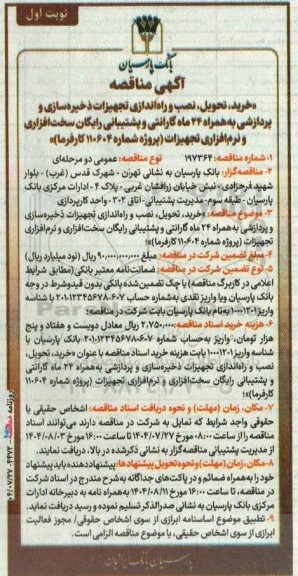 نوبت اول
بانک پارسیان
آگهی مناقصه
«خرید، تحویل، نصب و راه‌اندازی تجهیزات ذخیره‌سازی و
پردازشی به‌همراه ۲۴ ماه گارانتی و پشتیبانی رایگان سخت‌افزاری
و نرم‌افزاری تجهیزات (پروژه شماره ۱۱۰۶۰۴ کارفرما)»
۱- شماره مناقصه: ۱۹۷۳۶۴ نوع مناقصه: عمومی دو مرحله‌ای
۲- مناقصه‌گزار: بانک پارسیان به نشانی تهران - شهرک قدس (غرب) - بلوار
شهید فرحزادی - نبش خیابان زرافشان غربی - پلاک ۴ - ادارات مرکزی بانک
پارسیان - طبقه سوم- مدیریت پشتیبانی- اتاق ۳۰۲ - واحد کارپردازی
۳- موضوع مناقصه: «خرید، تحویل، نصب و راه‌اندازی تجهیزات ذخیره‌سازی
و پردازشی به‌همراه ۲۴ ماه گارانتی و پشتیبانی رایگان سخت‌افزاری و نرم‌افزاری
تجهیزات (پروژه شماره ۱۱۰۶۰۴ کارفرما)»؛
۴- مبلغ تضمین شرکت در مناقصه: مبلغ ۹۰,۰۰۰,۰۰۰,۰۰۰ ریال (نود میلیارد ریال)
۵- نوع تضمین شرکت در مناقصه: ضمانت‌نامه معتبر بانکی (مطابق شرایط
اعلامی در کاربرگ مناقصه) یا چک تضمین‌شده بانکی بدون قیدوشرط در وجه
بانک پارسیان ویا واریز نقدی به‌شماره حساب ۶۰۷-۱۲۳۴۵۶۷۸-۲۰۱ با شناسه
واریز ۱۰۰۰۱۲۰۱ به‌نام بانک پارسیان بابت شرکت در مناقصه؛
۶- هزینه خرید اسناد مناقصه: ۲,۷۵۰,۰۰۰ ریال معادل دویست و هفتاد و پنج
هزار تومان، واریز به‌حساب شماره ۶۰۷-۱۲۳۴۵۶۷۸-۲۰۱ بانک پارسیان و با
شناسه واریز ۱۰۰۰۱۲۰۱ بابت هزینه خرید اسناد مناقصه با عنوان «خرید، تحویل،
نصب و راه‌اندازی تجهیزات ذخیره‌سازی و پردازشی به‌همراه ۲۴ ماه گارانتی
و پشتیبانی رایگان سخت‌افزاری و نرم‌افزاری تجهیزات (پروژه شماره ۱۱۰۶۰۴
کارفرما)»؛
۷- مکان، زمان (مهلت) و نحوه دریافت اسناد مناقصه: اشخاص حقیقی یا
حقوقی واجد شرایط که تمایل به شرکت در مناقصه دارند می‌توانند اسناد
مناقصه را از ساعت ۰۸:۰۰ مورخ ۱۴۰۴/۰۷/۲۷ تا ساعت ۱۶:۰۰ مورخ ۱۴۰۴/۰۸/۰۳
از مدیریت پشتیبانی مناقصه‌گزار به نشانی ذکرشده در بالا، دریافت نمایند.
۸- مکان، زمان (مهلت) و نحوه تحویل پیشنهادها: پیشنهاددهنده باید پیشنهاد
خود را به‌همراه ضمائم و در پاکت‌های جداگانه به‌شرح مندرج در اسناد شرکت
در مناقصه، تا ساعت ۱۶:۰۰ مورخ ۱۴۰۴/۰۸/۱۱ به‌همراه نامه به دبیرخانه ادارات
مرکزی بانک پارسیان به نشانی صدرالذکر تسلیم نموده و رسید دریافت نماید.
۹- تطبیق موضوع اساسنامه ابرازی از سوی اشخاص حقوقی/ مجوز فعالیت
ابرازی از سوی اشخاص حقیقی، با موضوع مناقصه الزامی است.
پارسیان بانک ایرانیان